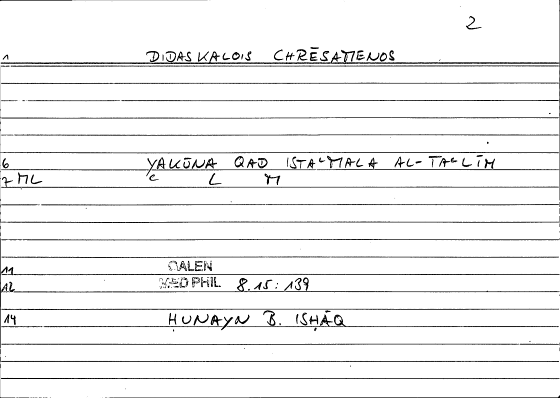 2
1 DIDASKALOIS CHRĒSAMENOS
6 YAKŪNA QAD ISTAʿMALA AL-TAʿLĪM
7 ML ʿ L M
11 GALEN
12 MED PHIL 8.15:139
14 ḤUNAYN B. ISḤĀQ